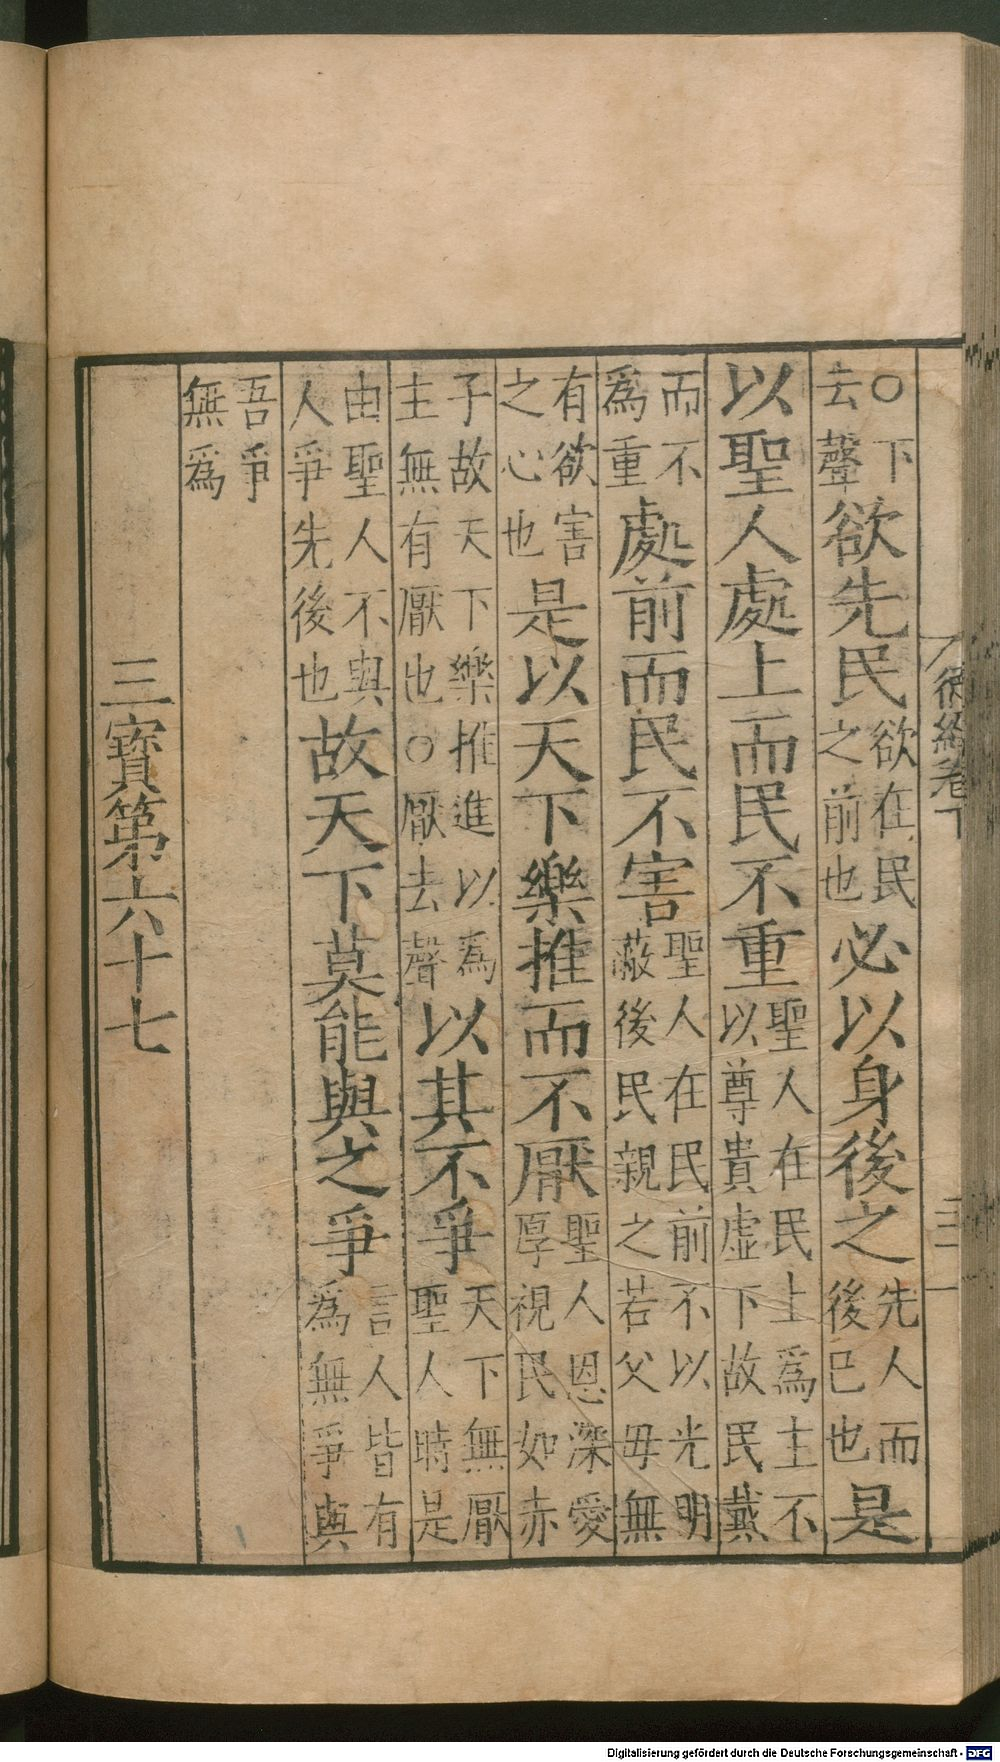 ○下去聲欲先民欲在民之前也必以身後之先人而後已也是
以聖人處上而民不重聖人在民上爲主不以尊貴虛下故民戴
而不爲重處前而民不害聖人在民前不以光明蔽後民親之若父毋無
有欲害之心也是以天下樂推而不厭聖人恩深愛厚視民如赤
子故天下樂推進以爲主無有厭也○厭去聲以其不爭天下無厭聖人時是
由聖人不與人爭先後也故天下莫能與之爭言人皆有爲無爭與
吾爭無爲
三寳第六十七
德經卷下
Digitalisierung gefördert durch die Deutsche Forschungsgemeinschaft - DFG